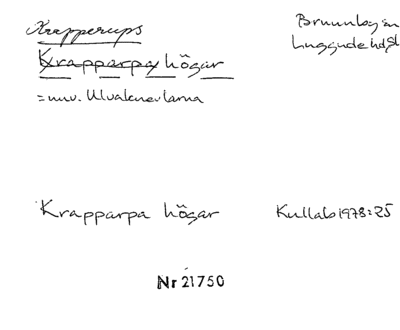 Krapperups
Brunnby sn
Krapparpa högar
Luggude hd Sk
= nuv. Ulvaknevlarna
Krapparpa högar
Kullab 1978:25
Nr 21750